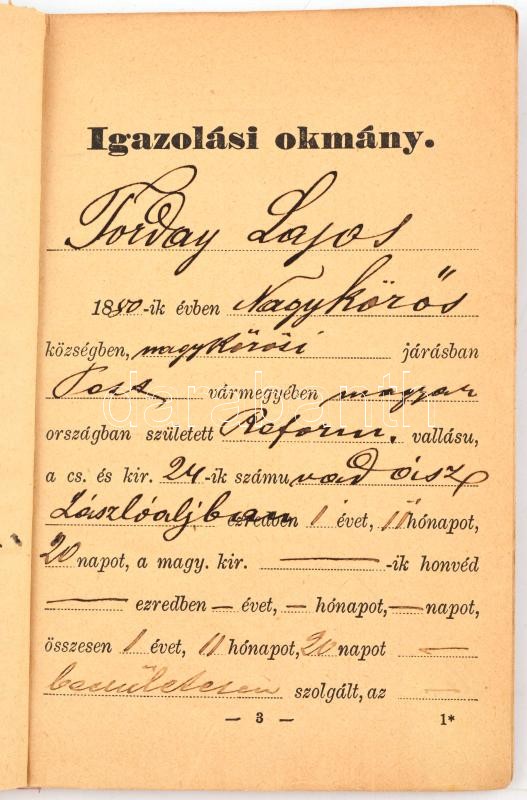 Igazolási okmány.
Torday Lajos
1850-ik évben Nagykőrös
községben, nagykőrösi járásban
Pest vármegyében magyar
országban született Reform. vallásu,
a cs. és kir. 24-ik számu vadász
zászlóaljban ezredben 1 évet, 11 hónapot,
20 napot, a magy. kir. — -ik honvéd
— ezredben — évet, — hónapot, — napot,
összesen 1 évet, 11 hónapot, 20 napot —
becsületesen szolgált, az —
— 3 — 1*
darabanth